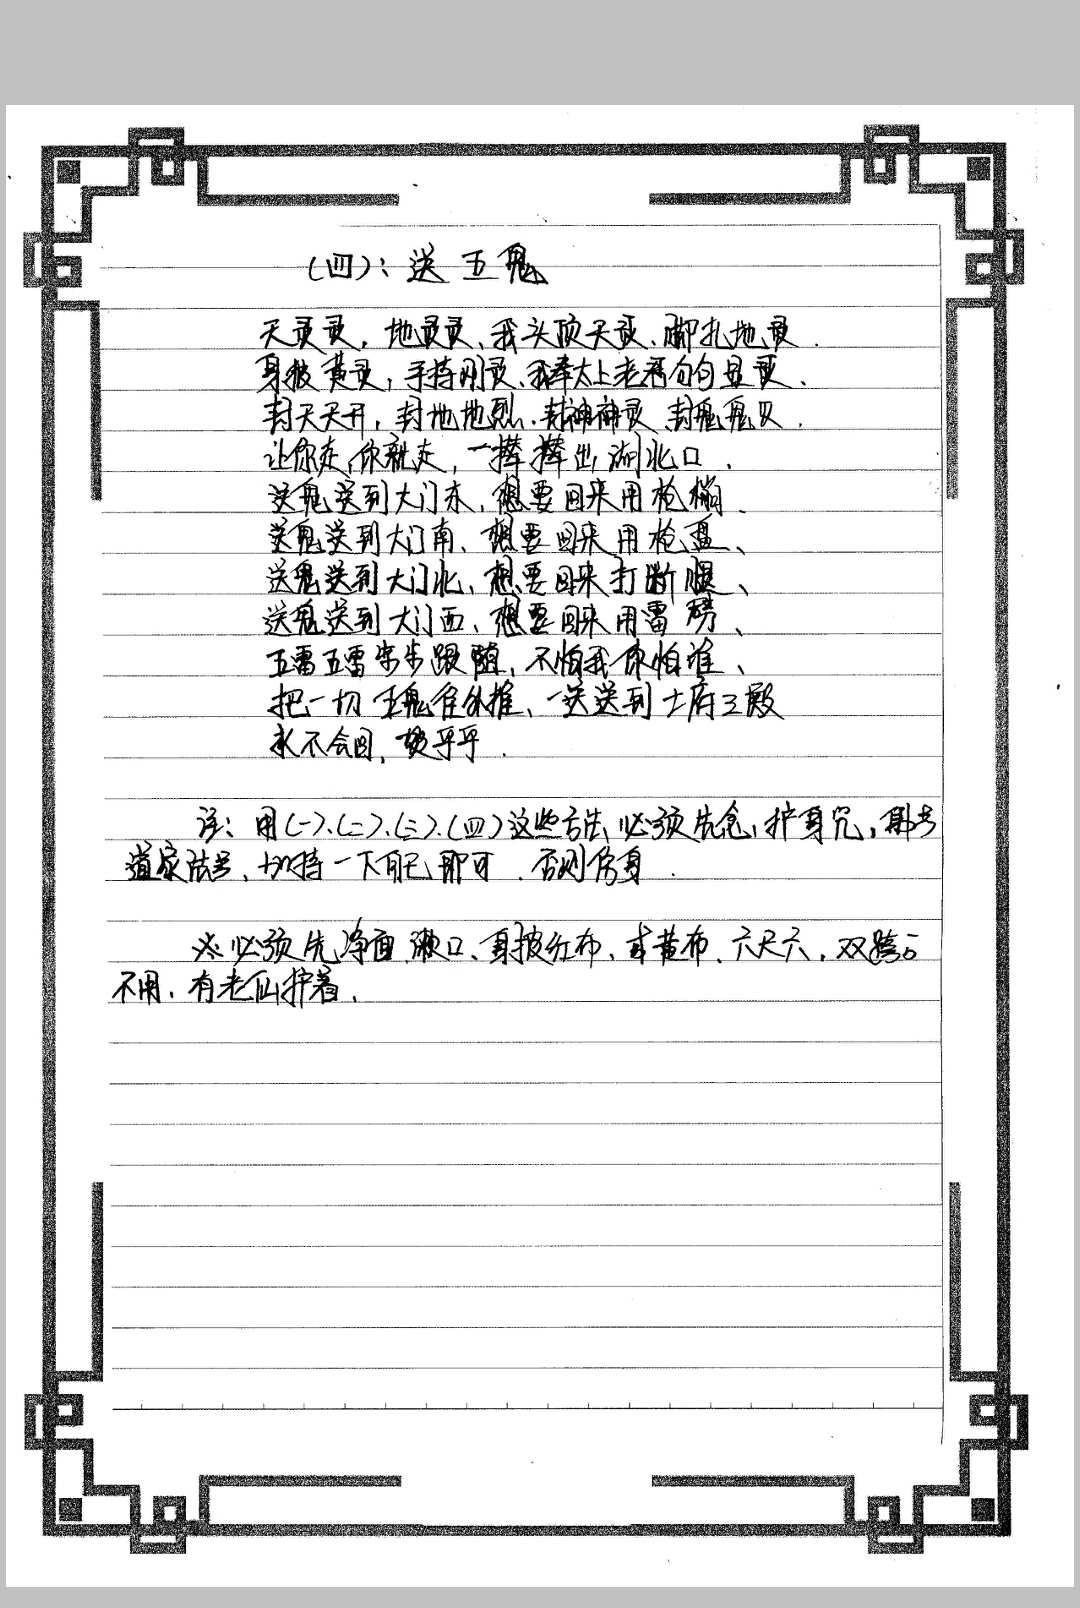 (四)：送五鬼
天灵灵，地灵灵、我头顶天灵、脚扎地灵.
身披黄灵，手持刚灵、我奉太上老君句句显灵、
封天天开，封地地烈.封神神灵、封鬼鬼灭.
让你走,你就走，一撵撵出湖北口、
送鬼送到大门东，想要回来用枪梢、
送鬼送到大门南、想要回来用枪
送鬼送到大门北，想要回来打断腿、
送鬼送到大门西、想要回来用雷劈、
五雷五雷步步跟随，不怕我你怕谁、
把一切五鬼往外推、一送送到土府三殿
永不会回，
注：用(一).(二).(三).(四)这些方法,必须先念,护身咒,
道家法号、加持一下自己即可.否则伤身.
※必须先净面、漱口、身披红布、或黄布、六尺六，双
不用，有老仙护着.